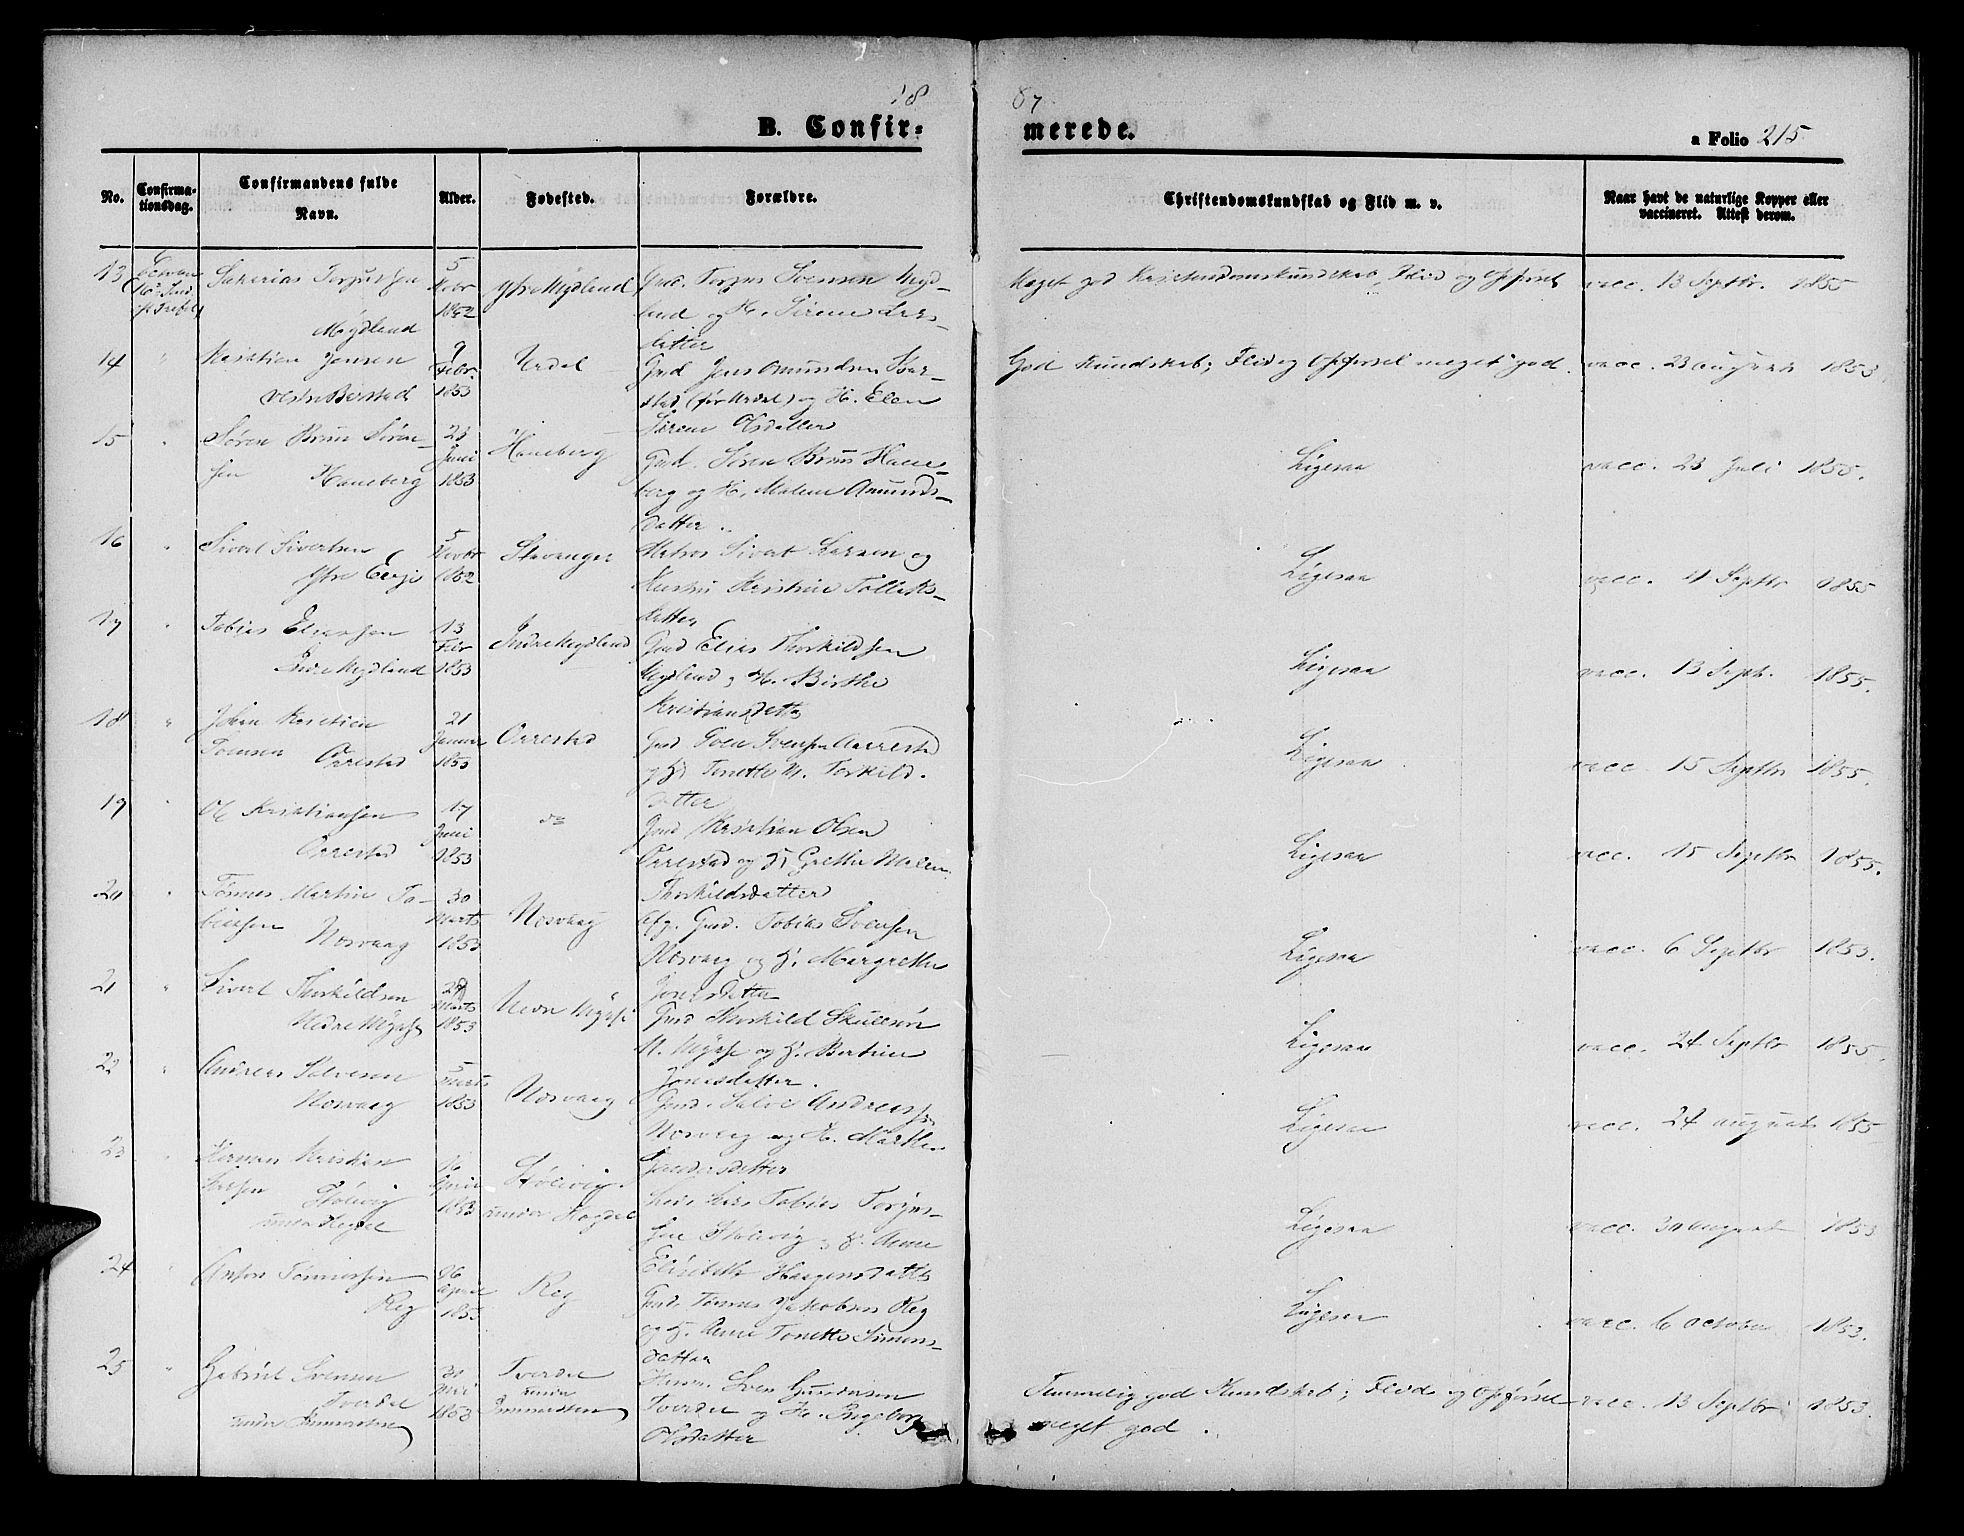 18 87
B. Confirmerede.
a Folio 215
No.
Confirmationsdag.
Confirmandens fulde Navn.
Alder.
Fødested.
Forældre.
Christendomskundskab og Flid m. v.
Naar havt de naturlige Kopper eller vaccineret. Attest derom.
13
Sakarias Torjussen
Mydland
5 Novbr 1852
Yttre Mydland
Gmd. Torjus Svensen Myd-
land og H. Sirene Lars-
datter
Meget god Kristendomskundskab, Flid og Opførsel
vacc. 13 Septbr. 1855
14 "
Kristian Jensen
Vestre Berstad
9 Febr. 1853
Urdal
Gmd Jens Omundsen
stad (før Urdal) og H. Elen
Sirene Olsdatter
God Kundskab, Flid og Opførsel meget god.
vacc. 23 august 1853
15 "
Søren Brun Søren-
sen Haneberg
23 Juni 1853
Haneberg
Gmd. Søren Bruun Hane-
berg og H. Malene Amunds-
datter.
Ligesaa
vacc. 23 Juli 1855.
16 "
Sivert Sivertsen
Ytre Eeg
5 Novbr 1852
Stavanger
Matros Sivert Larsen og
Hustru Kristine Tolleks-
datter
Ligesaa
vacc. 11 Septbr 1855
17 "
Tobias Eliassen
Indre Mydland
13 Febr 1853
Indre Mydland
Gmd Elias Thorkildsen
Mydland og H. Birthe
Kristiansdatter
Ligesaa
vacc. 13 Septb. 1855.
18 "
Johan Kristian
Svensen Orrestad
21 Januar 1853
Orrestad
Gmd Sven Svensen Aarrestad
og H. Tonette M. Torkild.
datter
Ligesaa
vacc. 15 Septbr 1855.
19 "
Ole Kristiansen
Orrestad
17 Juni 1853
do
Gmd Kristian Olsen
Orrestad og H. Grethe Malene
Thorkildsdatter
Ligesaa
vacc. 15 Septbr 1855.
20 "
Tønnes Martin To-
biassen Nesvaag
30 Marts 1853
Nesvaag
Afg. Gmd. Tobias Svensen
Nesvaag og H. Margrethe
Jonasdatter
Ligesaa
vacc. 6 Septbr 1853.
21 "
Sivert Thorkildsen
Nedre Mysse
Marts 1853
Nedre Mysse
Gmd Thorkild
N. Mysse og H. Bertine
Jonasdatter.
Ligesaa
vacc. 24 Septbr 1855.
22 "
Andreas Salvesen
Nesvaag
5 Marts 1853
Nesvaag
Gmd. Salve Andreassen
Nesvaag og H. Marthe
Gundersdatter
Ligesaa
vacc. 24 august 1855
23 "
Herman Kristian
Larsen Stølevig
under Hegdal
16 1853
Stølevig
under Hegdal
Leil. Lars Tobias Torjus-
sen Stølevig og H. Anne
Elisabeth Haagensdatter
Ligesaa
vacc. 30 august 1853
24 "
Anton Tønnessen
Reg
26 April 1853
Reg
Gmd. Tønnes Jakobsen Reg
og H. Anne Tonette Simons-
datter
Ligesaa
vacc. 6 october 1853.
25 "
Gabriel Svensen
Tverdal
under
30 Mai 1853
Tverdal
under
Husm. Sven Gundersen
Tverdal og H. Ingeborg
Olsdatter
Temmelig god Kundskab; Flid og Opførsel
meget god.
vacc. 13 Septbr 1853.